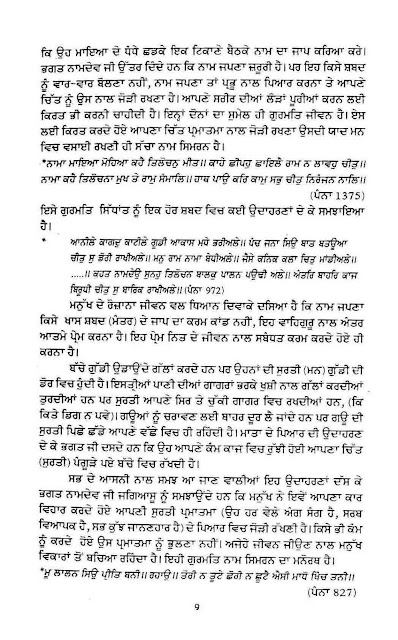 ਕਿ ਉਹ ਮਾਇਆ ਦੇ ਧੰਧੇ ਛਡਕੇ ਇਕ ਟਿਕਾਣੇ ਬੈਠਕੇ ਨਾਮ ਦਾ ਜਾਪ ਕਰਿਆ ਕਰੇ।
ਭਗਤ ਨਾਮਦੇਵ ਜੀ ਉੱਤਰ ਦਿੰਦੇ ਹਨ ਕਿ ਨਾਮ ਜਪਣਾ ਜ਼ਰੂਰੀ ਹੈ। ਪਰ ਇਹ ਕਿਸੇ ਸ਼ਬਦ
ਨੂੰ ਵਾਰ-ਵਾਰ ਬੋਲਣਾ ਨਹੀਂ, ਨਾਮ ਜਪਣਾ ਤਾਂ ਪ੍ਰਭੂ ਨਾਲ ਪਿਆਰ ਕਰਨਾ ਤੇ ਆਪਣੇ
ਚਿੱਤ ਨੂੰ ਉਸ ਨਾਲ ਜੋੜੀ ਰਖਣਾ ਹੈ। ਆਪਣੇ ਸਰੀਰ ਦੀਆਂ ਲੋੜਾਂ ਪੂਰੀਆਂ ਕਰਨ ਲਈ
ਕਿਰਤ ਭੀ ਕਰਨੀ ਚਾਹੀਦੀ ਹੈ। ਇਨ੍ਹਾਂ ਦੋਨਾਂ ਦਾ ਸੁਮੇਲ ਹੀ ਗੁਰਮਤਿ ਜੀਵਨ ਹੈ। ਏਸ
ਲਈ ਕਿਰਤ ਕਰਦੇ ਹੋਏ ਆਪਣਾ ਚਿੱਤ ਪ੍ਰਮਾਤਮਾ ਨਾਲ ਜੋੜੀ ਰਖਣਾ ਉਸਦੀ ਯਾਦ ਮਨ
ਵਿਚ ਵਸਾਈ ਰਖਣੀ ਹੀ ਸੱਚਾ ਨਾਮ ਸਿਮਰਨ ਹੈ।
*ਨਾਮਾ ਮਾਇਆ ਮੋਹਿਆ ਕਹੈ ਤਿਲੋਚਨੁ ਮੀਤ॥ ਕਾਹੇ ਛੀਪਹੁ ਛਾਇਲੈ ਰਾਮ ਨ ਲਾਵਹੁ ਚੀਤੁ॥
ਨਾਮਾ ਕਹੈ ਤਿਲੋਚਨਾ ਮੁਖ ਤੇ ਰਾਮੁ ਸੰਮਾਲਿ॥ ਹਾਥ ਪਾਉ ਕਰਿ ਕਾਮੁ ਸਭੁ ਚੀਤੁ ਨਿਰੰਜਨ ਨਾਲਿ॥
(ਪੰਨਾ 1375)
ਇਸੇ ਗੁਰਮਤਿ ਸਿੱਧਾਂਤ ਨੂੰ ਇਕ ਹੋਰ ਸ਼ਬਦ ਵਿਚ ਕਈ ਉਦਾਹਰਣਾਂ ਦੇ ਕੇ ਸਮਝਾਇਆ
ਹੈ।
* ਆਨੀਲੇ ਕਾਗਦੁ ਕਾਟੀਲੇ ਗੂਡੀ ਆਕਾਸ ਮਧੇ ਭਰੀਅਲੇ॥ ਪੰਚ ਜਨਾ ਸਿਉ ਬਾਤ ਬਤਊਆ
ਚੀਤੁ ਸੁ ਡੋਰੀ ਰਾਖੀਅਲੇ॥ ਮਨੁ ਰਾਮ ਨਾਮਾ ਬੇਧੀਅਲੇ॥ ਜੈਸੇ ਕਨਿਕ ਕਲਾ ਚਿਤੁ ਮਾਂਡੀਅਲੇ॥
.....॥ ਕਹਤ ਨਾਮਦੇਉ ਸੁਨਹੁ ਤਿਲੋਚਨ ਬਾਲਕੁ ਪਾਲਨ ਪਉਢੀ ਅਲੇ॥ ਅੰਤਰਿ ਬਾਹਰਿ ਕਾਜ
ਬਿਰੂਧੀ ਚੀਤੁ ਸੁ ਬਾਰਿਕ ਰਾਖੀਅਲੇ॥ (ਪੰਨਾ 972)
ਮਨੁੱਖ ਦੇ ਰੋਜ਼ਾਨਾ ਜੀਵਨ ਵਲ ਧਿਆਨ ਦਿਵਾਕੇ ਦਸਿਆ ਹੈ ਕਿ ਨਾਮ ਜਪਣਾ
ਕਿਸੇ ਖਾਸ ਸ਼ਬਦ (ਮੰਤਰ) ਦੇ ਜਾਪ ਦਾ ਕਰਮ ਕਾਂਡ ਨਹੀਂ, ਇਹ ਵਾਹਿਗੁਰੂ ਨਾਲ ਅੰਤਰ
ਆਤਮੇ ਪ੍ਰੇਮ ਕਰਨਾ ਹੈ। ਇਹ ਪ੍ਰੇਮ ਨਿਤ ਦੇ ਜੀਵਨ ਨਾਲ ਸਬੰਧਤ ਕਰਮ ਕਰਦੇ ਹੋਏ ਹੀ
ਕਰਨਾ ਹੈ।
ਬੱਚੇ ਗੁੱਡੀ ਉਡਾਉਂਦੇ ਗੱਲਾਂ ਕਰਦੇ ਹਨ ਪਰ ਉਹਨਾਂ ਦੀ ਸੁਰਤੀ (ਮਨ) ਗੁੱਡੀ ਦੀ
ਡੋਰ ਵਿਚ ਹੁੰਦੀ ਹੈ। ਇਸਤ੍ਰੀਆਂ ਪਾਣੀ ਦੀਆਂ ਗਾਗਰਾਂ ਭਰਕੇ ਖੁਸ਼ੀ ਨਾਲ ਗੱਲਾਂ ਕਰਦੀਆਂ
ਤੁਰਦੀਆਂ ਹਨ ਪਰ ਸੁਰਤੀ ਆਪਣੇ ਸਿਰ ਤੇ ਚੁੱਕੀ ਗਾਗਰ ਵਿਚ ਰਖਦੀਆਂ ਹਨ, (ਕਿ
ਕਿਤੇ ਡਿਗ ਨ ਪਵੇ)। ਗਊਆਂ ਨੂੰ ਚਰਾਵਣ ਲਈ ਬਾਹਰ ਦੂਰ ਲੈ ਜਾਂਦੇ ਹਨ ਪਰ ਗਊ ਦੀ
ਸੁਰਤੀ ਪਿਛੇ ਛੱਡੇ ਆਪਣੇ ਵੱਛੇ ਵਿਚ ਹੀ ਰਹਿੰਦੀ ਹੈ। ਮਾਤਾ ਦੇ ਪਿਆਰ ਦੀ ਉਦਾਹਰਣ
ਦੇ ਕੇ ਭਗਤ ਜੀ ਦਸਦੇ ਹਨ ਕਿ ਉਹ ਆਪਣੇ ਕੰਮ ਕਾਜ ਵਿਚ ਰੁੱਝੀ ਹੋਈ ਆਪਣਾ ਚਿੱਤ
(ਸੁਰਤੀ) ਪੰਗੂੜੇ ਪਏ ਬੱਚੇ ਵਿਚ ਰੱਖਦੀ ਹੈ।
ਸਭ ਦੇ ਆਸਾਨੀ ਨਾਲ ਸਮਝ ਆ ਜਾਣ ਵਾਲੀਆਂ ਇਹ ਉਦਾਹਰਣਾਂ ਦੱਸ ਕੇ
ਭਗਤ ਨਾਮਦੇਵ ਜੀ ਜਗਿਆਸੂ ਨੂੰ ਸਮਝਾਉਂਦੇ ਹਨ ਕਿ ਮਨੁੱਖ ਨੇ ਇਵੇਂ ਆਪਣਾ ਕਾਰ
ਵਿਹਾਰ ਕਰਦੇ ਹੋਏ ਆਪਣੀ ਸੁਰਤੀ ਪ੍ਰਮਾਤਮਾ (ਉਹ ਹਰ ਵੇਲੇ ਅੰਗ ਸੰਗ ਹੈ, ਸਰਬ
ਵਿਆਪਕ ਹੈ, ਸਭ ਕੁੱਝ ਜਾਨਣਹਾਰ ਹੈ) ਦੇ ਪਿਆਰ ਵਿਚ ਜੋੜੀ ਰੱਖਣੀ ਹੈ। ਕਿਸੇ ਭੀ ਕੰਮ
ਨੂੰ ਕਰਦੇ ਹੋਏ ਉਸ ਪ੍ਰਮਾਤਮਾ ਨੂੰ ਭੁਲਣਾ ਨਹੀਂ। ਅਜੇਹੇ ਜੀਵਨ ਜੀਉਣ ਨਾਲ ਮਨੁੱਖ
ਵਿਕਾਰਾਂ ਤੋਂ ਬਚਿਆ ਰਹਿੰਦਾ ਹੈ। ਇਹੀ ਗੁਰਮਤਿ ਨਾਮ ਸਿਮਰਨ ਦਾ ਮਨੋਰਥ ਹੈ।
*ਮੂ ਲਾਲਨ ਸਿਉ ਪ੍ਰੀਤਿ ਬਨੀ॥ ਰਹਾਉ॥ ਤੋਰੀ ਨ ਤੂਟੈ ਛੋਰੀ ਨ ਛੂਟੈ ਐਸੀ ਮਾਧੋ ਖਿੰਚ ਤਨੀ॥
(ਪੰਨਾ 827)
9